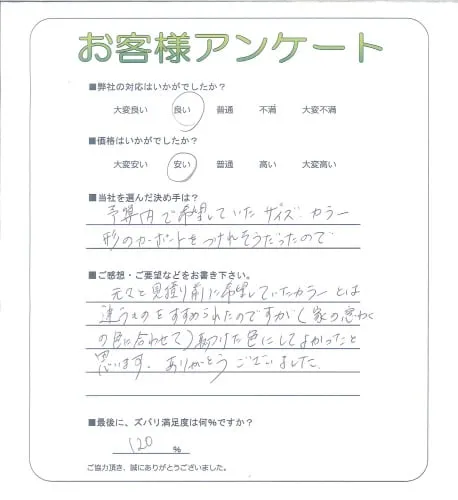 お客様アンケート
■弊社の対応はいかがでしたか?
大変良い 良い 普通 不満 大変不満
■価格はいかがでしたか?
大変安い 安い 普通 高い 大変高い
■当社を選んだ決め手は?
予算内で希望していたサイズ、カラー
形のカーポートをつけれそうだったので
■ご感想・ご要望などをお書き下さい。
元々と見積り前に希望していたカラーとは
違うものをすすめられたのですが(家の窓わく
の色に合わせて)つけた色にしてよかったと
思います。ありがとうございました。
■最後に、ズバリ満足度は何%ですか?
120 %
ご協力頂き、誠にありがとうございました。